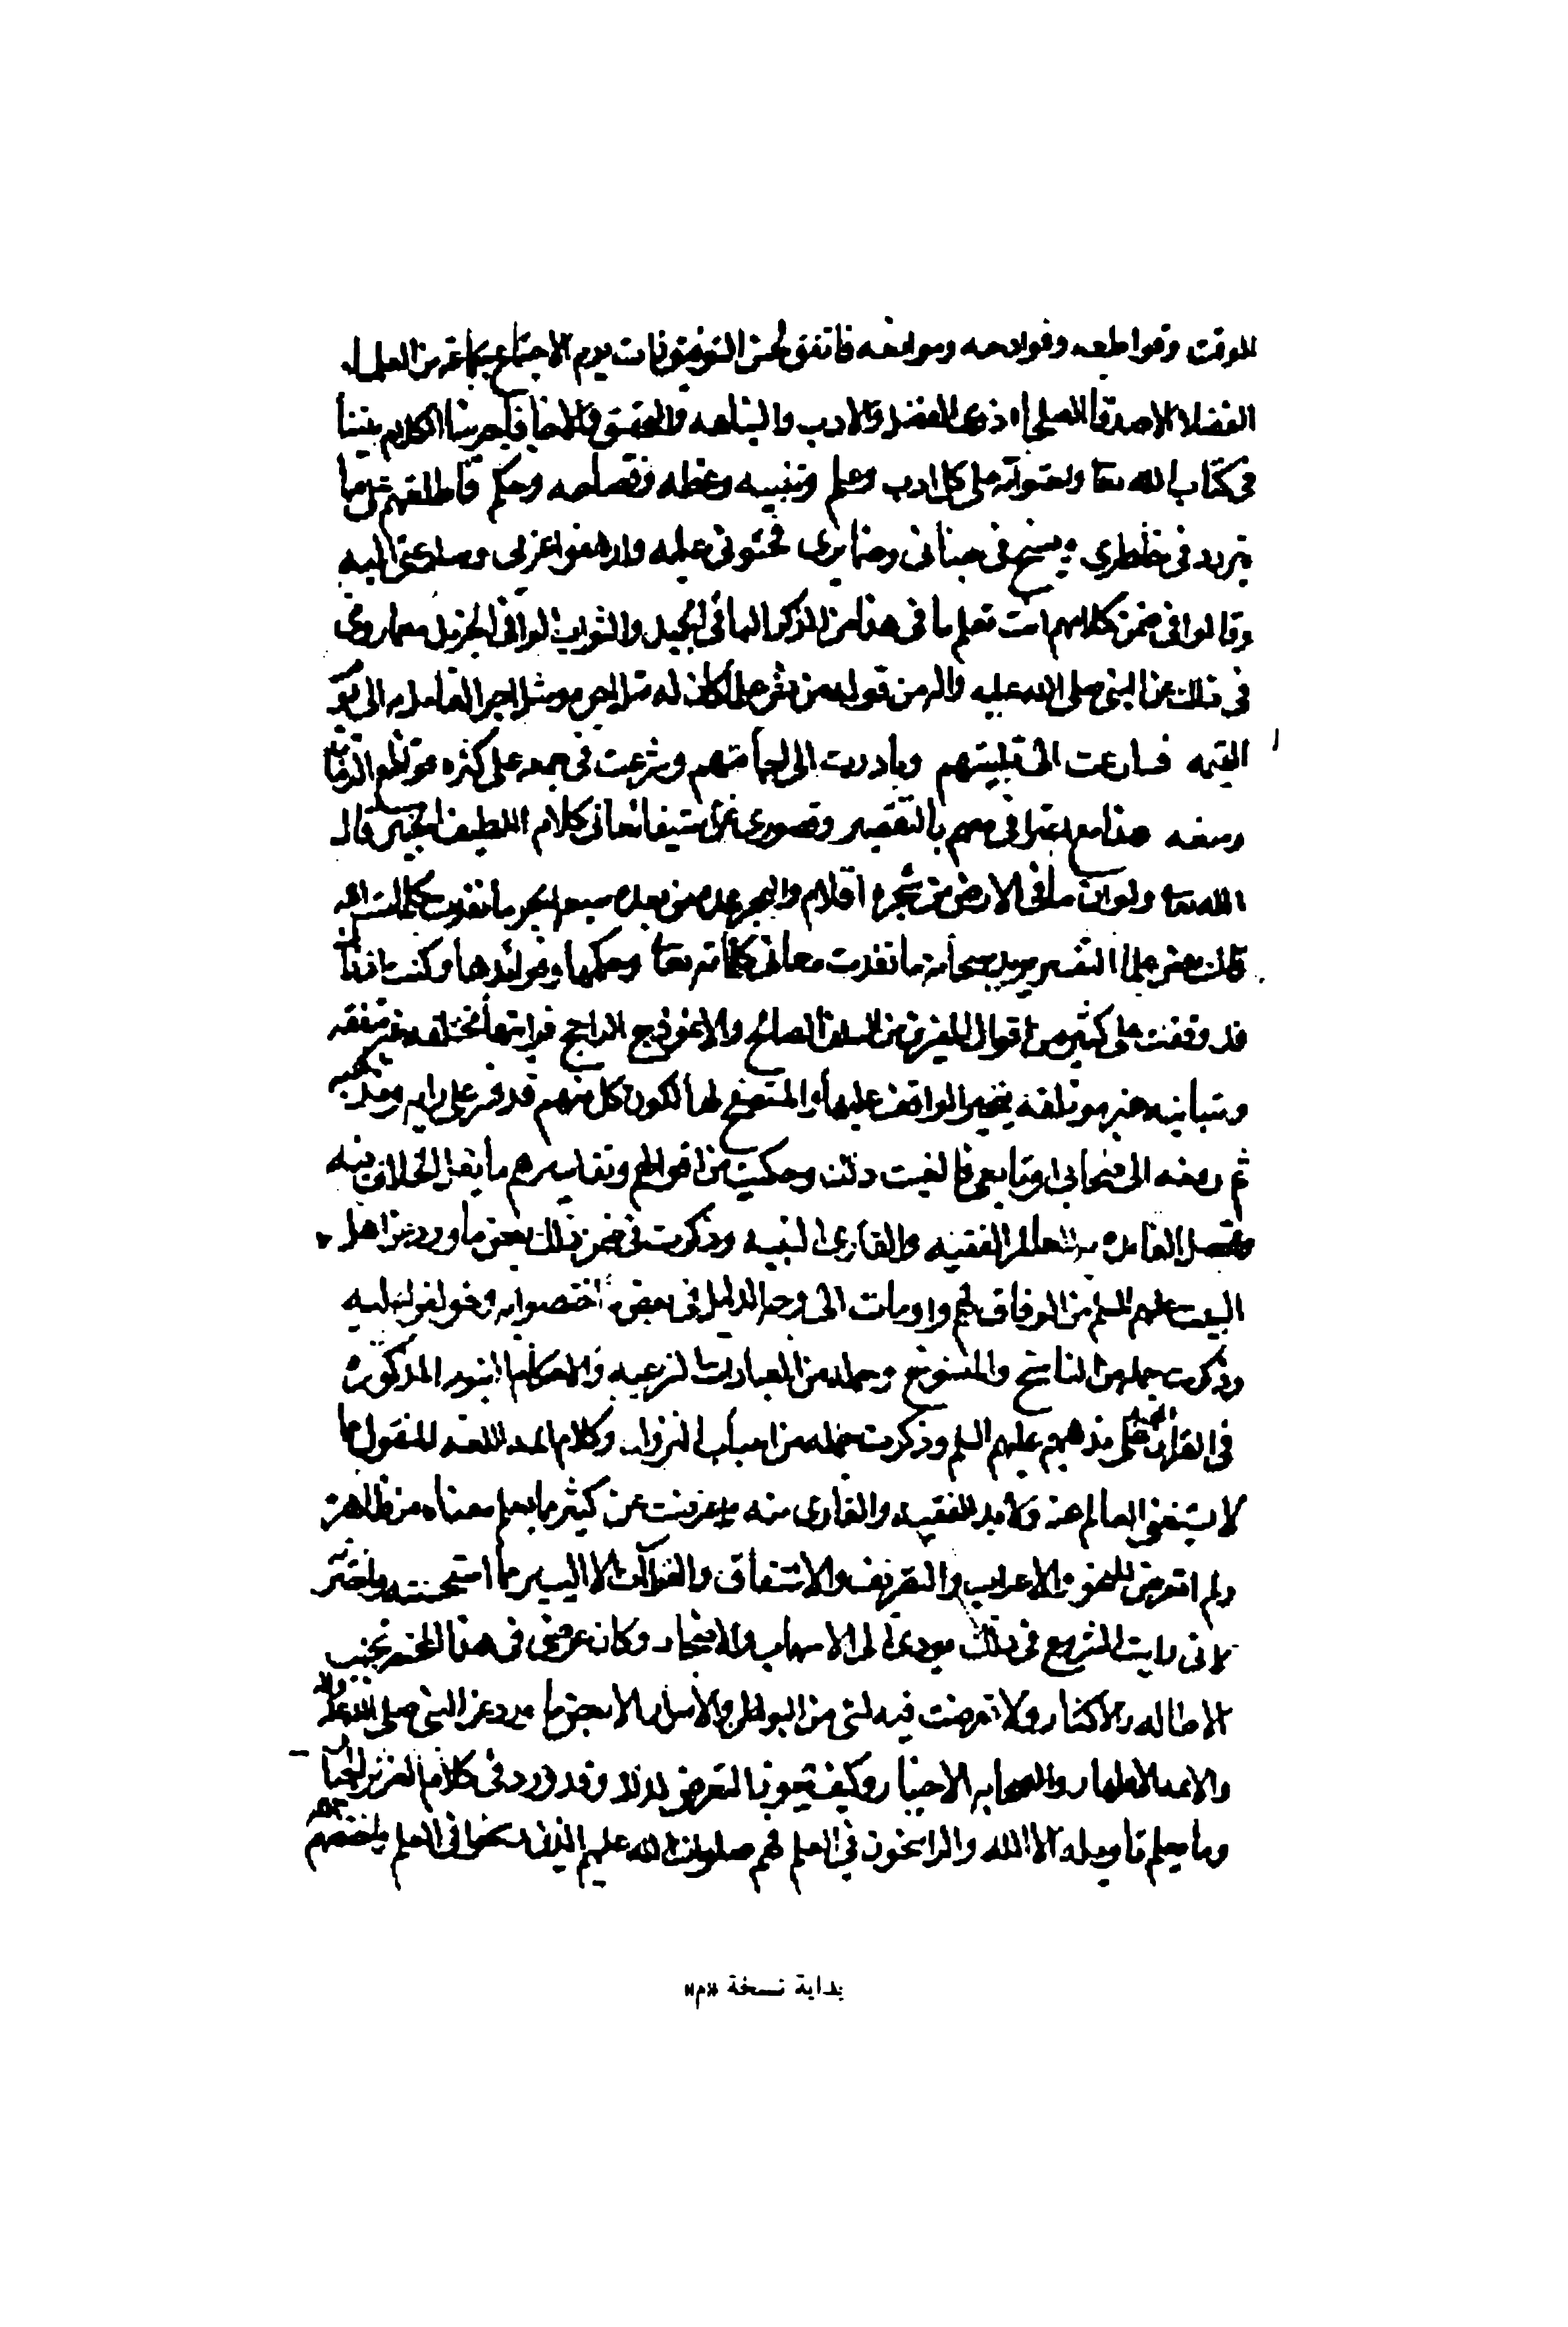 الوقت وقواطعه وقوادحه وموانعه فاتفق لحسن التوفيق ذات يوم الاجتماع بجماعة من العلماء
الفضلا الاصدقا الصلحاء ذوى الفضل والادب والنباهه والتحقيق والامحا فاجرينا الكلام بيننا
فى كتاب الله تعا واحتوائه على كل ادب وعلم وتنبيه وعظه وفصاحه وحكم فاطلعتهم على ما
يتردد فى خاطرى ويسنح فى جنانى وضمايرى فحثونى عليه وارهفوا عزمى وساعدونى اليه
وقالوا فى ضمن كلامهم انت تعلم ما فى هذا من الذكر الجميل والثواب الوافى الجزيل مما روى
فى ذلك عن النبى صلى الله عليه واله من قوله من نشر علما كان له مثل اجر القايل به الى يوم
القيمه فسارعت الى تلبيتهم وبادرت الى اجابتهم وشرعت فى جمعه على كثره موانع الوقت
هذا مع اعترافى معهم بالتقصير وقصورى عن استيفا معانى كلام اللطيف الخبير قال
الله تعا ولو ان ما فى الارض من شجره اقلام والبحر يمده من بعده سبعه ابحر ما نفدت كلمات الله
قال بعض علما التفسير يريد سبحانه ما نفدت معانى كلماته تعا وحكمها وفوائدها وكنت انفا
قد وقفت على كثير من اقوال المفسرين من السلف الصالح والانموذج الراجح فرايتها مختلفه غير متفقه
ومتباينه غير مؤتلفه يتحير الواقف عليها والمتصفح لها لكون كل منهم قد فسر على رايه ومذهبه
ثم رفعه الى صحابى او تابعى فالغيت ذلك وحكيت من اقوالهم وتفاسيرهم ما يقل الخلاف فيه
وتحصل الفايده للعالم الفقيه والقارى النبيه وذكرت فى ضمن ذلك بعض ما ورد عن اهل
البيت عليهم السلم من الوفاق لهم واومات الى وجه الدليل فى بعض ما اختصوا به وخولفوا عليه
وذكرت جمله من الناسخ والمنسوخ وجمله من العبادات الشرعيه والاحكام النبويه المذكوره
فى القران المجيد على مذهبهم عليهم السلم وذكرت جمله من اسباب النزول وكلام ائمه اللغه المنقول ما
لا يستغنى العالم عنه ولا بد للفقيه والقارى منه واعرضت عن كثير ما يعلم معناه من ظاهره
ولم اتعرض للنحو والاعراب والتصريف والاشتقاق والقراات الا اليسير مما استحسنته واخترته
لانى رايت الشروع فى ذلك مودى الى الاسهاب والاضجار وكان غرضى فى هذا المختصر تجنب
الاطاله والاكثار ولا تعرضت فيه لشى من البواطن والاسرار الا بعض ما ورد عن النبى صلى الله عليه واله
والائمه الاطهار والصحابه الاخيار وكيف يجوز التعرض لذلك وقد ورد فى كلام العزيز الجبار
وما يعلم تاويله الا الله والراسخون فى العلم فهم صلوات الله عليهم الذين رسخوا فى العلم واختصهم
بداية نسخة «م»